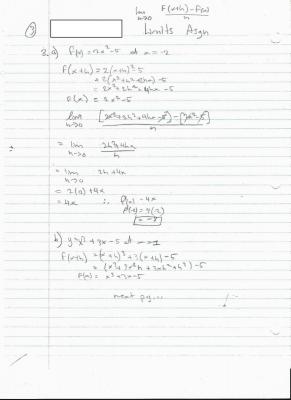 lim F(x+h) - F(x)
h→0 h
③ Limits Asgn
3. a) f(x) = 2x²-5 at x = -2
F(x+h) = 2(x+h)²-5
= 2(x²+h²+2hx) -5
= 2x²+2h²+4hx -5
F(x) = 2x²-5
lim [2x²+2h²+4hx-5] - [2x²-5]
h→0 h
= lim 2h²+4hx
h→0 h
= lim 2h + 4x
h→0
= 2(0) + 4x
= 4x ∴ f'(x) = 4x
f'(-2) = 4(-2)
= -8
b) y = x³ + 3x - 5 at
F(x+h) = (x+h)³ + 3(x+h) - 5
= (x³+3x²h + 3xh² + h³) - 5
F(x) = x³+3x-5
next pg...